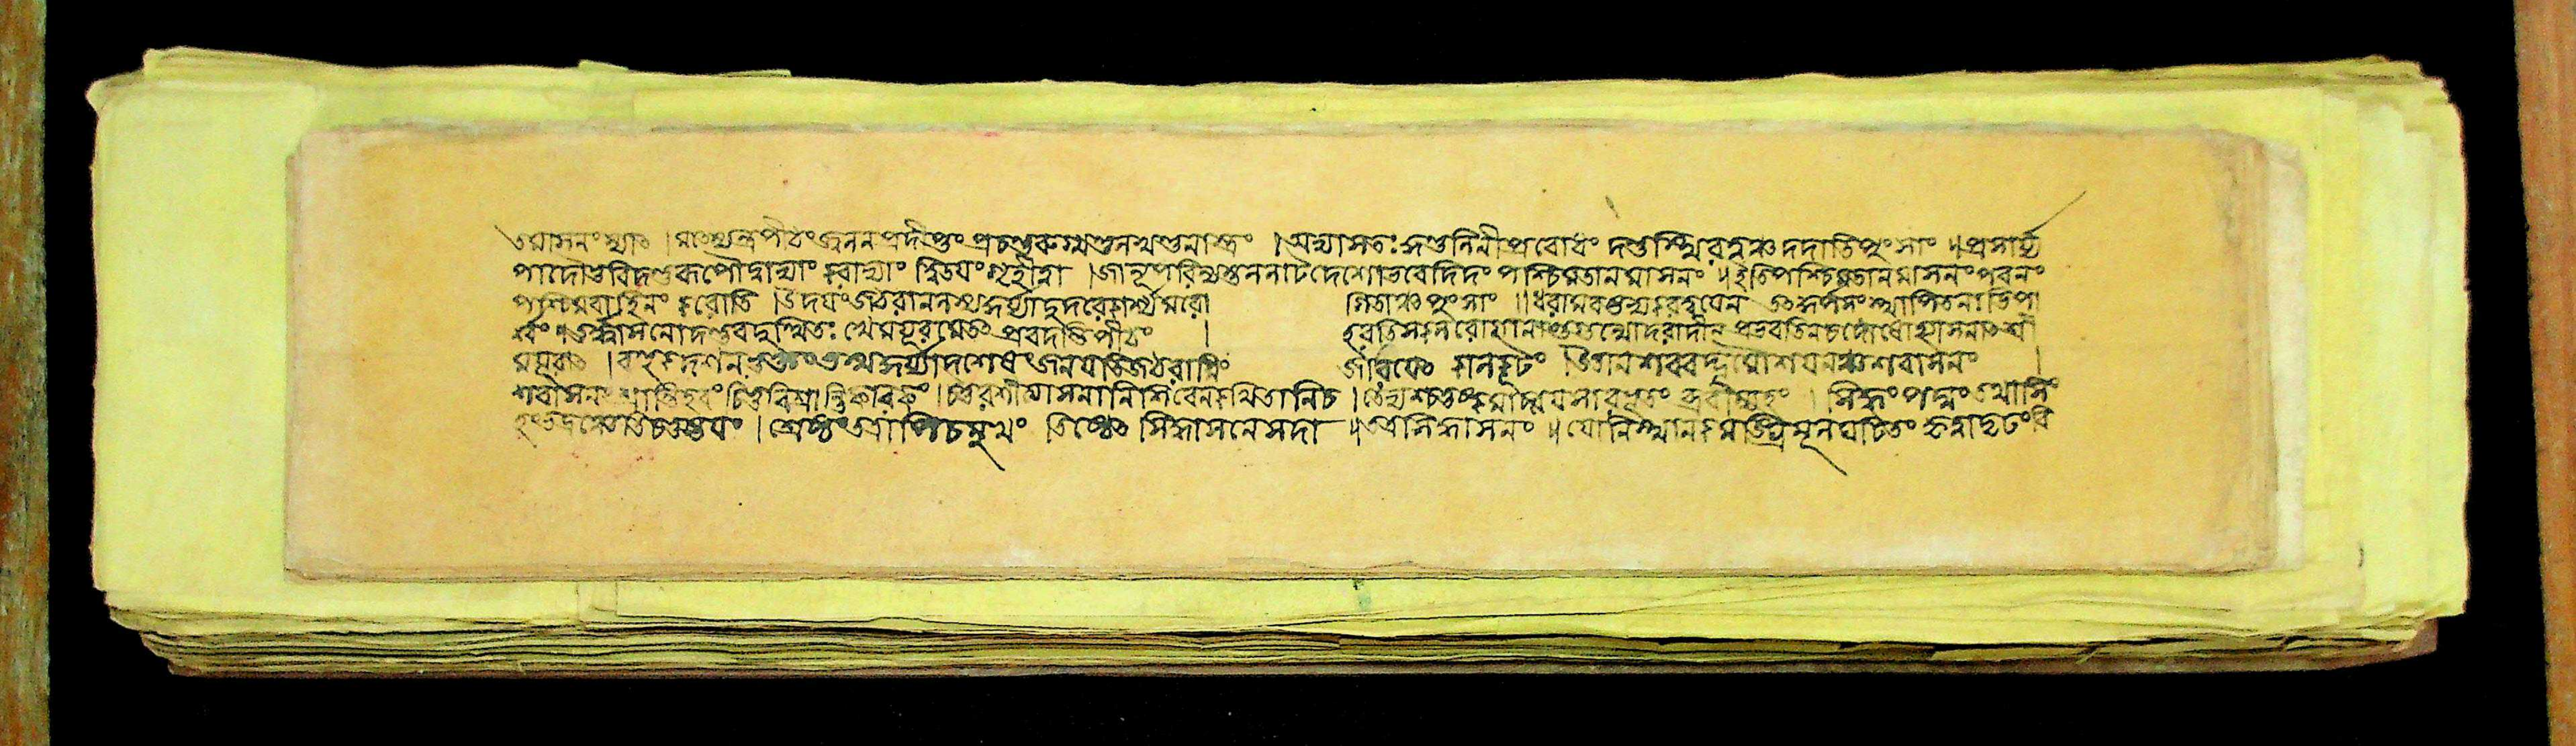 তমাসনংস্যাৎ । মৎস্যেন্দ্রপীঠংজঠরপ্রদীপ্তং প্রচণ্ডরুগ্মণ্ডলখণ্ডনাস্ত্রং । অভ্যাসতঃ কুণ্ডলিনীপ্রবোধং দণ্ডস্থিরত্বঞ্চ দদাতিপুংসাং ॥ প্রসার্য্য
পাদৌভুবিদণ্ডরূপৌদ্বাভ্যাং করাভ্যাং দ্বিতয়ংগৃহীত্বা । জানূপরিন্যস্তললাটদেশোভবেদিদং পশ্চিমতানমাসনং ॥ ইতিপশ্চিমতানমাসনংপবনং
পশ্চিমবাহিনং করোতি । উদয়ংজঠরানলস্যকুর্য্যাদুদরেকার্শ্যমরো গিতাঞ্চপুংসাং ॥ ধরামবষ্টভ্যকরদ্বয়েন তৎকূর্পরংস্থাপিতনাভিপা
র্শ্বং । উচ্চাসনোদণ্ডবদুত্থিতঃ খেময়ূরমেতৎ প্রবদন্তিপীঠং । হরতিসকলরোগানাশুগুল্মোদরাদীন
জীর্ণয়েৎ কালকূটং । উত্তানশববদ্ভূমৌশয়নঞ্চশবাসনং ।
শবাসনং শ্রান্তিহরংচিত্তবিশ্রান্তিকারকং । চতুরশীত্যাসনানিশিবেনকথিতানিচ । তেভ্যশ্চতুষ্কমাদায়সারভূতংব্রবীম্যহং । সিদ্ধংপদ্মংতথাসিং
হংভদ্রঞ্চেতিচতুষ্টয়ং । শ্রেষ্ঠংতত্রাপিচসুখং তিষ্ঠেৎ সিদ্ধাসনেসদা ॥ তত্রসিদ্ধাসনং ॥ যোনিস্থানকমঙ্ঘ্রিমূলঘটিতং কৃত্বাদৃঢংবি